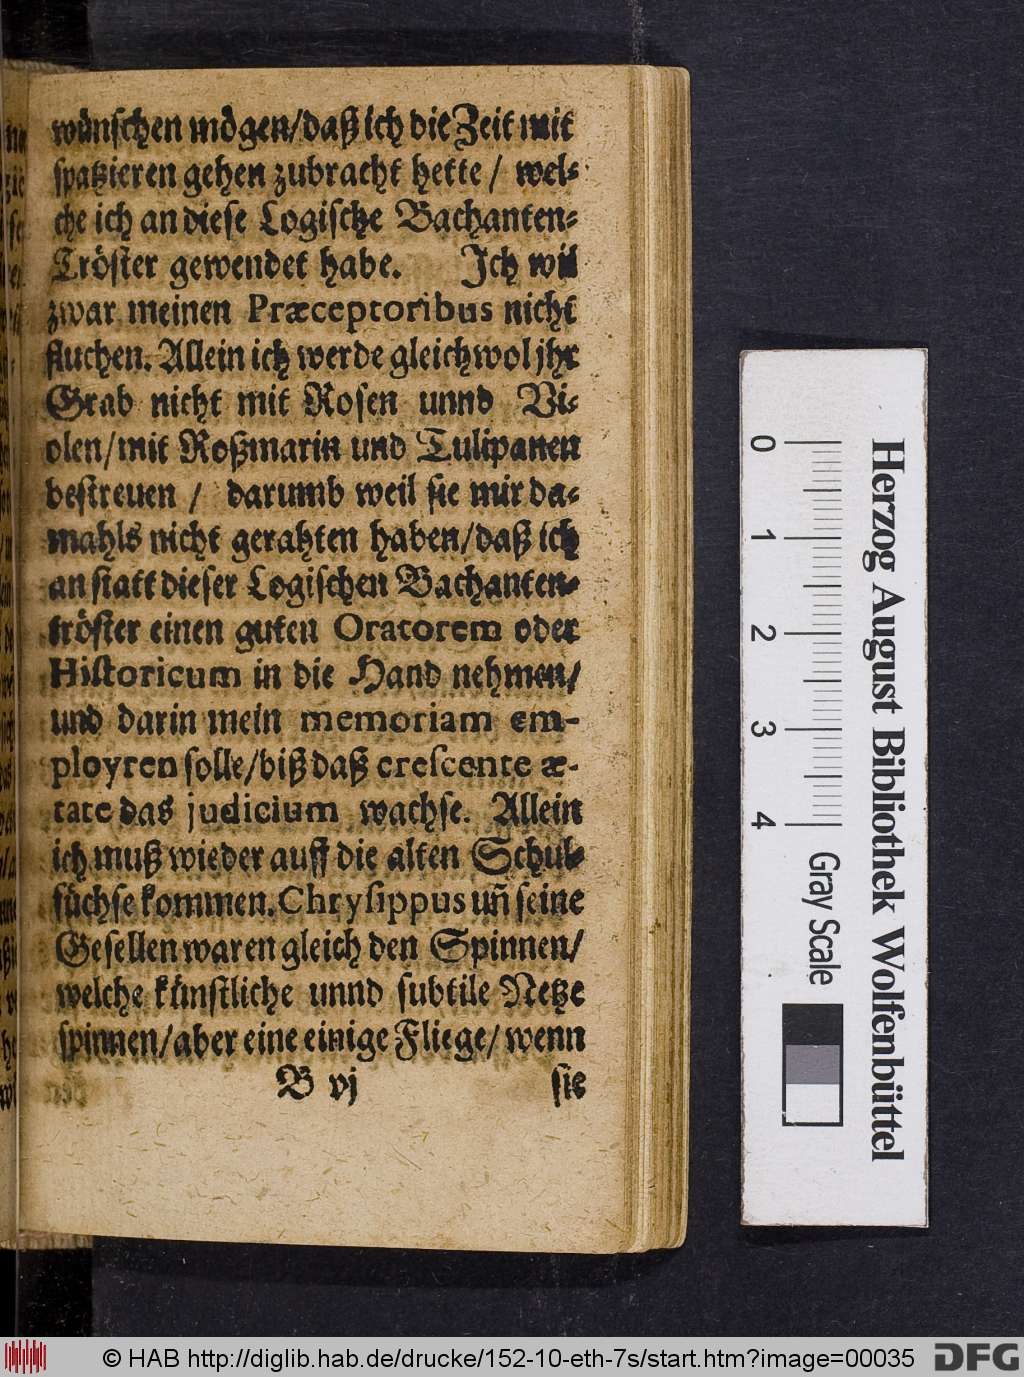 wünschen mögen/daß ich die Zeit mit
spatzieren gehen zubracht hette/ wel-
che ich an diese Logische Bachanten-
Tröster gewendet habe. Ich wil
zwar meinen Præceptoribus nicht
fluchen. Allein ich werde gleichwol jhr
Grab nicht mit Rosen unnd Vi-
olen/mit Roßmarin und Tulipanen
bestreuen / darumb weil sie mir da-
mahls nicht gerahten haben/daß ich
an statt dieser Logischen Bachanten-
tröster einen guten Oratorem oder
Historicum in die Hand nehmen/
und darin mein memoriam em-
ployren solle/biß daß crescente æ-
tate das judicium wachse. Allein
ich muß wieder auff die alten Schul-
füchse kommen. Chrysippus uñ seine
Gesellen waren gleich den Spinnen/
welche künstliche unnd subtile Netze
spinnen/aber eine einige Fliege/ wenn
B vj sie
0 1 2 3 4
Gray Scale
Herzog August Bibliothek Wolfenbüttel
© HAB http://diglib.hab.de/drucke/152-10-eth-7s/start.htm?image=00035
DFG